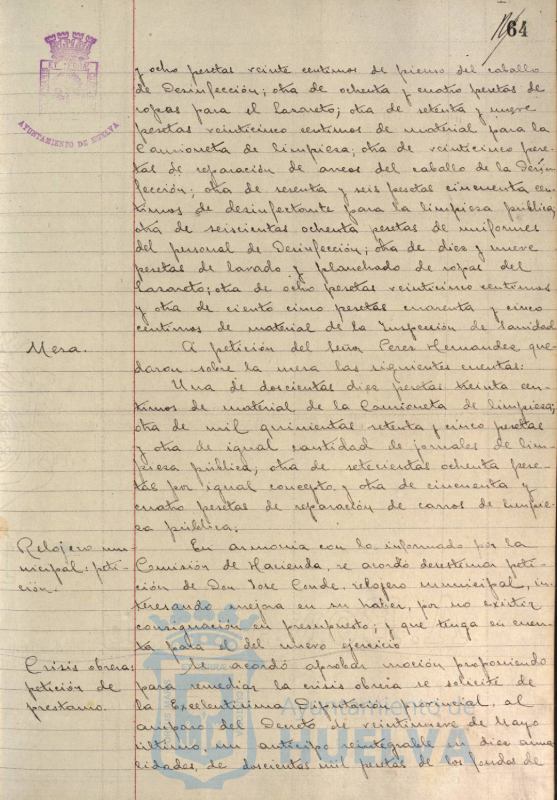 64
AYUNTAMIENTO DE HUELVA
y ocho pesetas veinte centimos de pienso del caballo
de Desinfección; otra de ochenta y cuatro pesetas de
ropas para el Lazareto; otra de setenta y nueve
pesetas veinticinco centimos de material para la
Camioneta de limpieza; otra de veinticinco pese-
tas de reparación de arreos del caballo de la Desin-
fección; otra de sesenta y seis pesetas cincuenta cen-
timos de desinfectante para la limpieza pública;
otra de seiscientas ochenta pesetas de uniformes
del personal de Desinfección; otra de diez y nueve
pesetas de lavado y planchado de ropas del
Lazareto; otra de ocho pesetas veinticinco centimos
y otra de ciento cinco pesetas cuarenta y cinco
centimos de material de la Inspección de Sanidad
Mesa.
A petición del Señor Perez Hernandez que-
daron sobre la mesa las siguientes cuentas:
Una de doscientas diez pesetas treinta cen-
timos de material de la Camioneta de limpieza;
otra de mil quinientas setenta y cinco pesetas
y otra de igual cantidad de jornales de lim-
pieza pública; otra de setecientas ochenta pese-
tas por igual concepto y otra de cincuenta y
cuatro pesetas de reparación de carros de limpie-
za pública.
Relojero mu-
nicipal: peti-
ción.
En armonia con lo informado por la
Comisión de Hacienda, se acordó desestimar peti-
ción de Don Jose Conde, relojero municipal, in-
teresando mejora en su haber, por no existir
consignación en presupuesto; y que tenga en cuen-
ta para el del nuevo ejercicio
Crisis obrera:
petición de
prestamo.
Se acordó aprobar moción proponiendo
para remediar la crisis obrera se solicite de
la Excelentisima Diputación provincial, al
amparo del Decreto de veintinueve de Mayo
último, un anticipo reintegrable en diez anua-
lidades, de doscientas mil pesetas de los fondos de
Ayuntamiento de
HUELVA